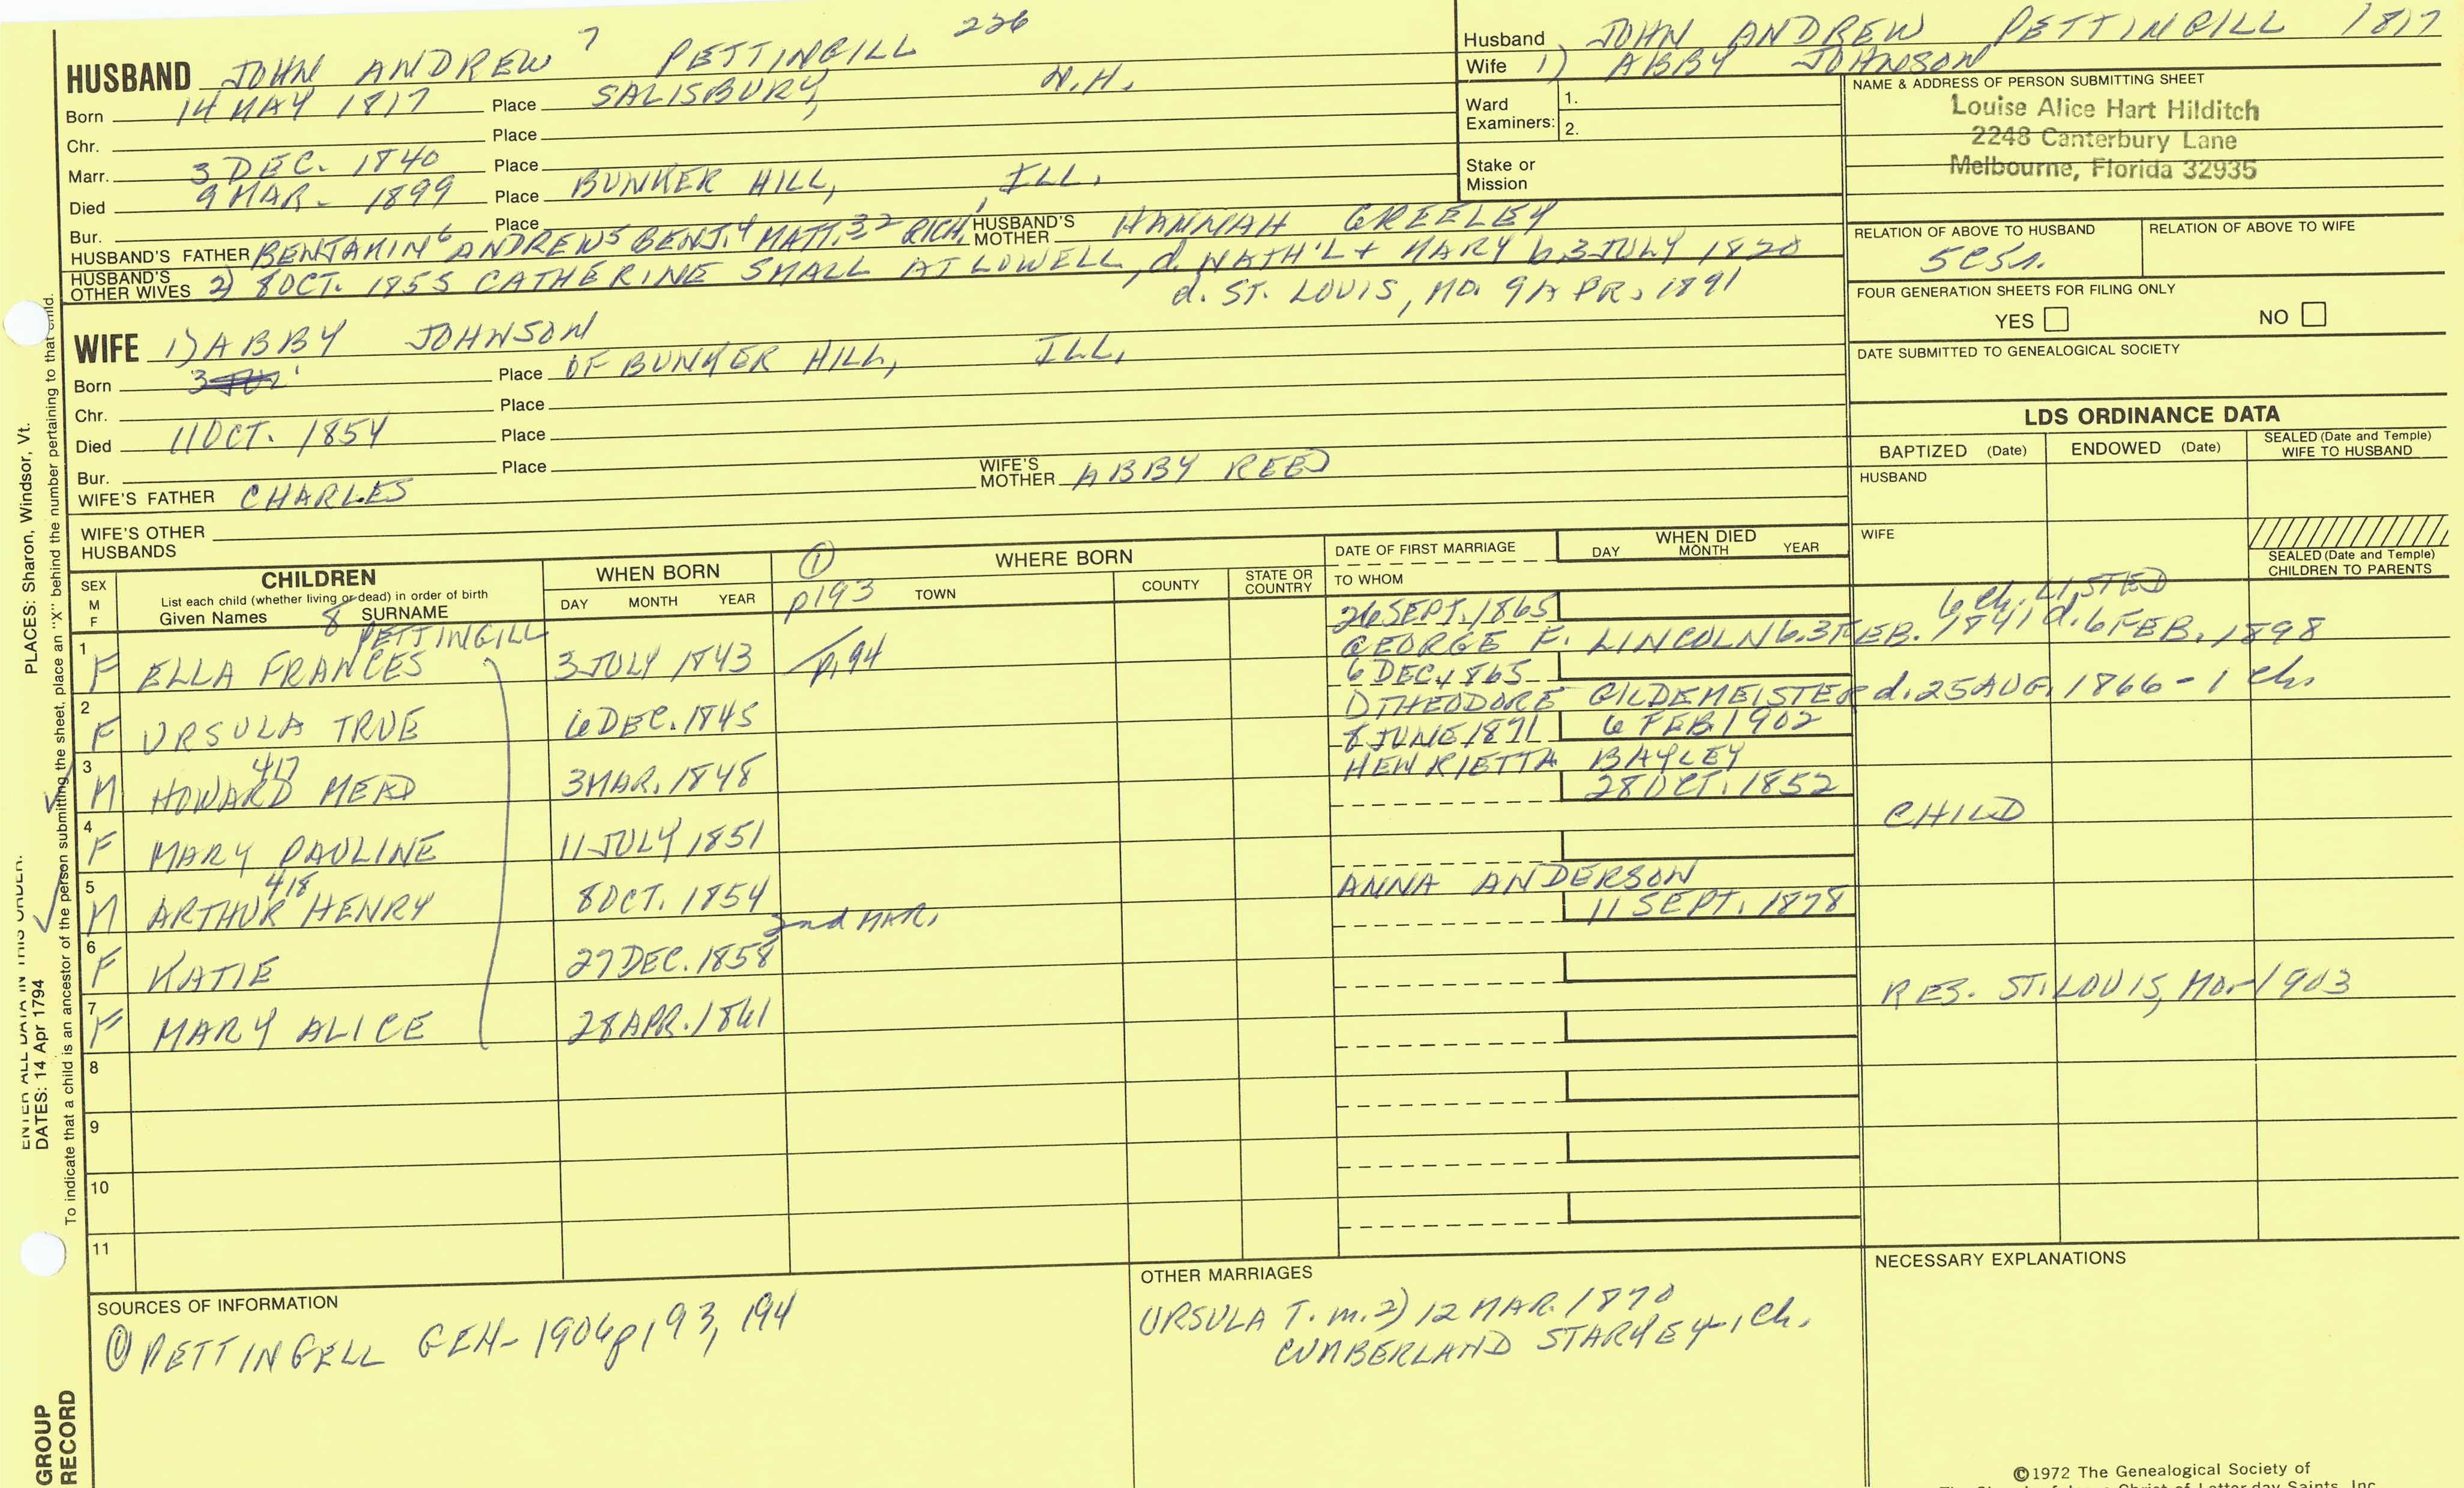 HUSBAND JOHN ANDREW 7 PETTINGILL 226
Born 14 MAY 1817 Place SALISBURY, N.H.
Chr. Place
Marr. 3 DEC. 1840 Place
Died 9 MAR. 1899 Place BUNKER HILL, ILL.
Bur. Place
HUSBAND'S FATHER BENJAMIN 6 ANDREW 5 BENJ. 4 MATT. 3 2 RICH. 1 HUSBAND'S MOTHER HANNAH GREELEY
HUSBAND'S OTHER WIVES 2) 8 OCT. 1855 CATHERINE SMALL AT LOWELL, d. NATH'L + MARY b. 3 JULY 1820
d. ST. LOUIS, MO. 9 APR. 1891
Husband JOHN ANDREW PETTINGILL 1817
Wife 1) ABBY JOHNSON
Ward Examiners: 1.
2.
Stake or Mission
NAME & ADDRESS OF PERSON SUBMITTING SHEET
Louise Alice Hart Hilditch
2248 Canterbury Lane
Melbourne, Florida 32935
RELATION OF ABOVE TO HUSBAND RELATION OF ABOVE TO WIFE
5C5r.
FOUR GENERATION SHEETS FOR FILING ONLY
YES NO
DATE SUBMITTED TO GENEALOGICAL SOCIETY
WIFE 1) ABBY JOHNSON
Born 3 Place OF BUNKER HILL, ILL.
Chr. Place
Died 11 OCT. 1854 Place
Bur. Place
WIFE'S FATHER CHARLES WIFE'S MOTHER ABBY REED
WIFE'S OTHER HUSBANDS
LDS ORDINANCE DATA
BAPTIZED (Date) ENDOWED (Date) SEALED (Date and Temple) WIFE TO HUSBAND
HUSBAND
WIFE
SEALED (Date and Temple) CHILDREN TO PARENTS
SEX M F
CHILDREN
List each child (whether living or dead) in order of birth
Given Names 8 SURNAME
PETTINGILL
WHEN BORN
DAY MONTH YEAR
① p193
WHERE BORN
TOWN COUNTY STATE OR COUNTRY
DATE OF FIRST MARRIAGE
TO WHOM
WHEN DIED
DAY MONTH YEAR
1 F ELLA FRANCES 3 JULY 1843 p194 26 SEPT. 1865
GEORGE F. LINCOLN b. 3 FEB. 1841 d. 6 FEB. 1898 6 ch. LISTED
2 F URSULA TRUE 6 DEC. 1845 6 DEC. 1865
1) THEODORE GILDEMEISTER d. 25 AUG. 1866 - 1 ch.
3 M HOWARD MEAD 417 3 MAR. 1848 8 JUNE 1871 6 FEB 1902
HENRIETTA BAYLEY
4 F MARY PAULINE 11 JULY 1851 28 OCT. 1852 CHILD
5 M ARTHUR HENRY 418 8 OCT. 1854
ANNA ANDERSON
2nd MAR.
6 F KATIE 27 DEC. 1858 11 SEPT. 1878
7 F MARY ALICE 28 APR. 1861 RES. ST. LOUIS, MO. - 1903
8
9
10
11
SOURCES OF INFORMATION
① PETTINGELL GEN- 1906 p193, 194
OTHER MARRIAGES
URSULA T. m. 2) 12 MAR. 1870
CUMBERLAND STARKEY - 1 ch.
NECESSARY EXPLANATIONS
©1972 The Genealogical Society of
ENTER ALL DATA IN THIS ORDER:
DATES: 14 Apr 1794 PLACES: Sharon, Windsor, Vt.
To indicate that a child is an ancestor of the person submitting the sheet, place an "X" behind the number pertaining to that child.
GROUP
RECORD